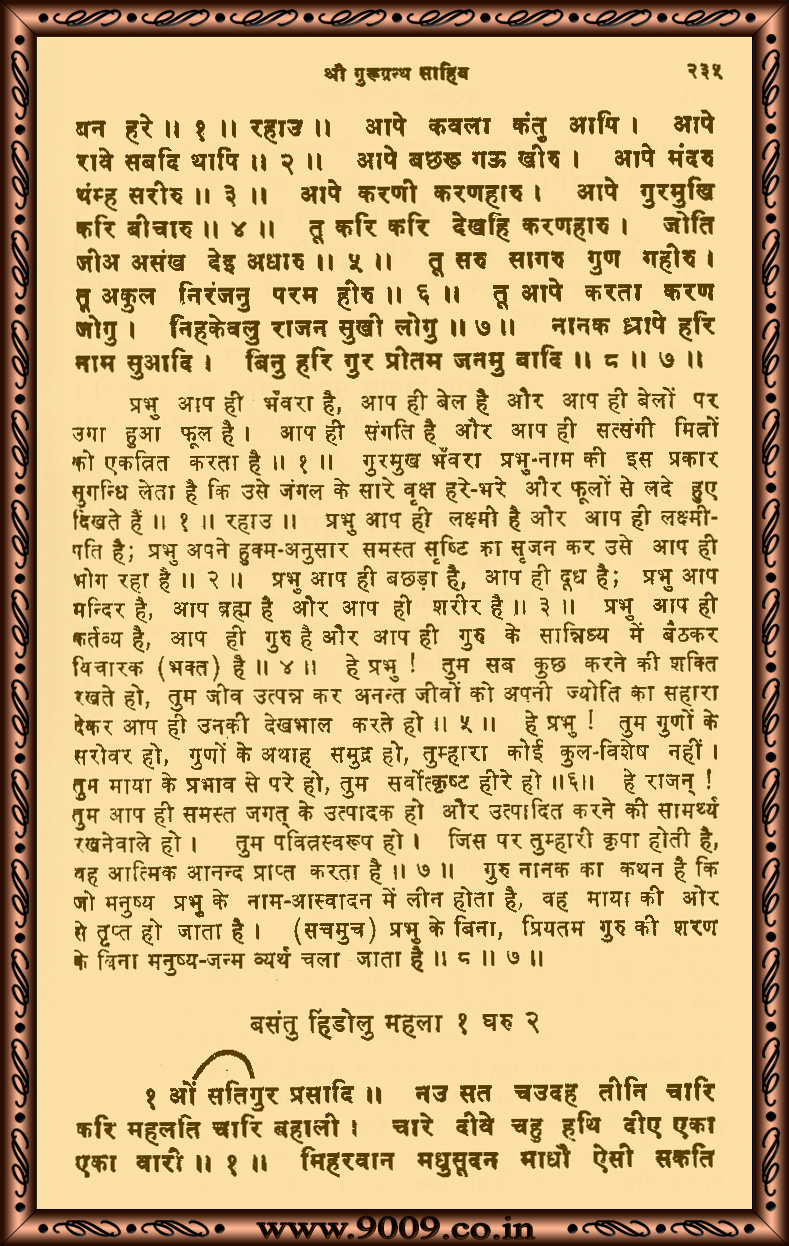 श्री गुरूग्रन्थ साहिब २३५
घन हरे ॥ १ ॥ रहाउ ॥ आपे कवला कंतु आपि । आपे
रावे सबदि थापि ॥ २ ॥ आपे बछरू गऊ खीरु । आपे मंदरु
थंम्ह सरीरु ॥ ३ ॥ आपे करणी करणहारु । आपे गुरमुखि
करि बीचारु ॥ ४ ॥ तू करि करि देखहि करणहारु । जोति
जीअ असंख देइ अधारु ॥ ५ ॥ तू सरु सागरु गुण गहीरु ।
तू अकुल निरंजनु परम हीरु ॥ ६ ॥ तू आपे करता करण
जोगु । निहकेवलु राजन सुखी लोगु ॥ ७ ॥ नानक ध्रापे हरि
नाम सुआदि । बिनु हरि गुर प्रीतम जनमु बादि ॥ ८ ॥ ७ ॥
प्रभु आप ही भँवरा है, आप ही बेल है और आप ही बेलों पर
उगा हुआ फूल है । आप ही संगति है और आप ही सत्संगी मित्रों
को एकत्रित करता है ॥ १ ॥ गुरमुख भँवरा प्रभु-नाम की इस प्रकार
सुगन्धि लेता है कि उसे जंगल के सारे वृक्ष हरे-भरे और फूलों से लदे हुए
दिखते हैं ॥ १ ॥ रहाउ ॥ प्रभु आप ही लक्ष्मी है और आप ही लक्ष्मी-
पति है; प्रभु अपने हुक्म-अनुसार समस्त सृष्टि का सृजन कर उसे आप ही
भोग रहा है ॥ २ ॥ प्रभु आप ही बछड़ा है, आप ही दूध है; प्रभु आप
मन्दिर है, आप ब्रह्म है और आप ही शरीर है ॥ ३ ॥ प्रभु आप ही
कर्तव्य है, आप ही गुरु है और आप ही गुरु के सान्निध्य में बैठकर
विचारक (भक्त) है ॥ ४ ॥ हे प्रभु ! तुम सब कुछ करने की शक्ति
रखते हो, तुम जीव उत्पन्न कर अनन्त जीवों को अपनी ज्योति का सहारा
देकर आप ही उनकी देखभाल करते हो ॥ ५ ॥ हे प्रभु ! तुम गुणों के
सरोवर हो, गुणों के अथाह समुद्र हो, तुम्हारा कोई कुल-विशेष नहीं ।
तुम माया के प्रभाव से परे हो, तुम सर्वोत्कृष्ट हीरे हो ॥६॥ हे राजन् !
तुम आप ही समस्त जगत् के उत्पादक हो और उत्पादित करने की सामर्थ्य
रखनेवाले हो । तुम पवित्रस्वरूप हो । जिस पर तुम्हारी कृपा होती है,
वह आत्मिक आनन्द प्राप्त करता है ॥ ७ ॥ गुरु नानक का कथन है कि
जो मनुष्य प्रभु के नाम-आस्वादन में लीन होता है, वह माया की ओर
से तृप्त हो जाता है । (सचमुच) प्रभु के बिना, प्रियतम गुरु की शरण
के बिना मनुष्य-जन्म व्यर्थ चला जाता है ॥ ८ ॥ ७ ॥
बसंतु हिंडोलु महला १ घरु २
१ ओं सतिगुर प्रसादि ॥ नउ सत चउदह तीनि चारि
करि महलति चारि बहाली । चारे दीवे चहु हथि दीए एका
एका वारी ॥ १ ॥ मिहरवान मधुसूदन माधौ ऐसी सकति
www.9009.co.in